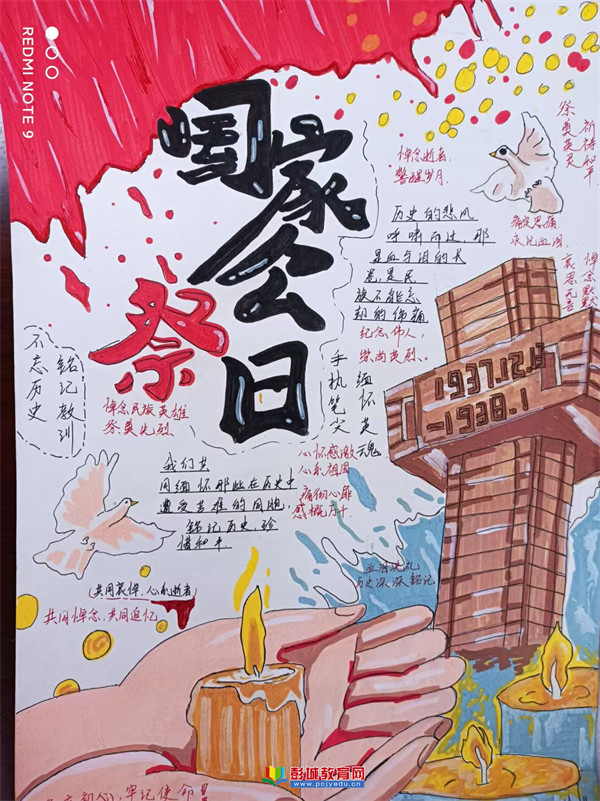 REDMI NOTE 9
国家公
祭
日
悼念逝者
警醒岁月
祈祷和平
祭奠英灵
痛定思痛
悼念默默
哀思无言
历史的悲风
呼啸而过,那
是血与泪的长
是民
族不能忘
却的伤痛
纪念伟人,
崇尚英烈。
缅怀英魂
手执笔尖
铭记教训
不忘历史
悼念民族英雄
祭奠先烈
心怀感激
心系祖国
痛彻心扉
感慨万千
我们共
同缅怀那些在历史中
遭受苦难的同胞,
铭记历史,珍
惜和平
(共同哀悼,心系逝者)
共同悼念,共同追忆
1937.12.
-1938.1
历史深深铭记
牢记使命
彭城教育网
www.pcjyedu.cn